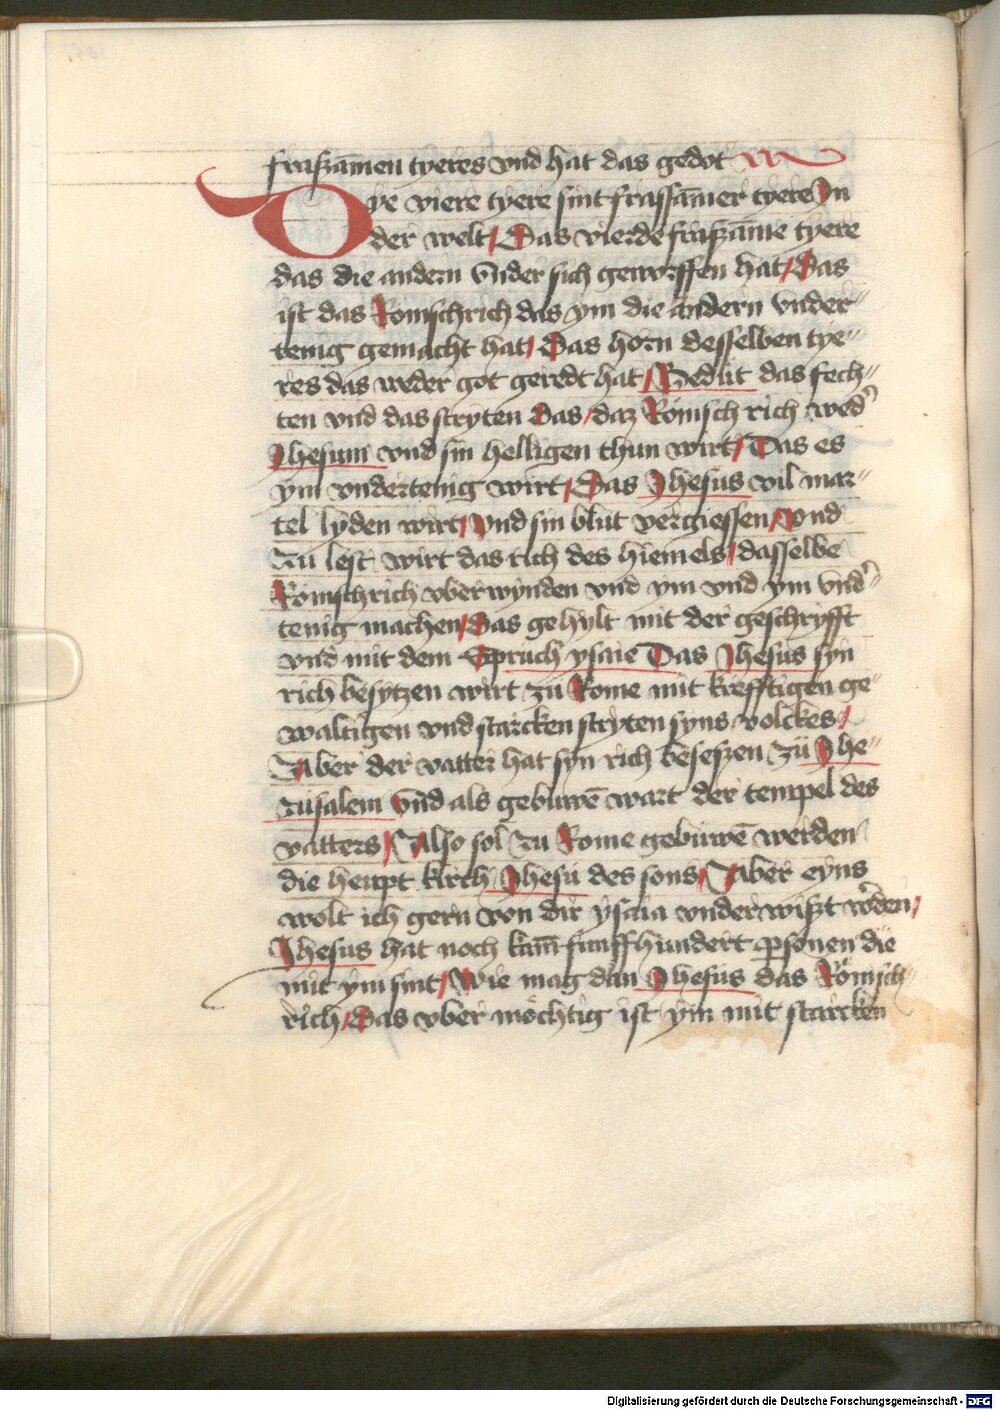 fraszamen tyeres vnd hat das gedöt
Dye viere tyere sint frassamer tyere In
der welt / Das vierde fraszame tyere
das die andern vnder sich geworffen hat / Das
ist das Römsch rich das ym die andern vnder=
tenig gemacht hat / Das horn desselben tye=
res das weder got geredt hat / Bedüt das fech=
ten vnd das stryten Das / daz Römsch rich wed'
Jhesum vnd sin helligen thun wirt / Das es
ym vndertenig wirt / Das Jhesus vil mar=
tel lyden wirt / vnd sin blüt vergiessen / vnd
zü lest wirt das rich des hiemels / dasselbe
Römsch rich vberwynden vnd ym vnd ym vnd'=
tenig machen / Das gehylt mit der geschryfft
vnd mit dem Spruch ysaie Das Jhesus syn
rich besytzen wirt zü Rome mit krefftigen ge=
waltigen vnd starcken stryten syns volckes /
Aber der vatter hat syn rich beseszen zü Jhe=
rusalem vnd als gebuwē wart der tempel des
vatters / Also sol zu Rome gebuwē werden
die heupt kirch Jhesu des sons / Aber eyns
wolt ich gern von dir ysaia vnderwiszt w'den /
Jhesus hat noch kām funffhundert psonen die
mit ym sint / Wie mag dan Jhesus das Römsch
rich / Das vber möchtig ist ym mit starcken
Digitalisierung gefördert durch die Deutsche Forschungsgemeinschaft - DFG